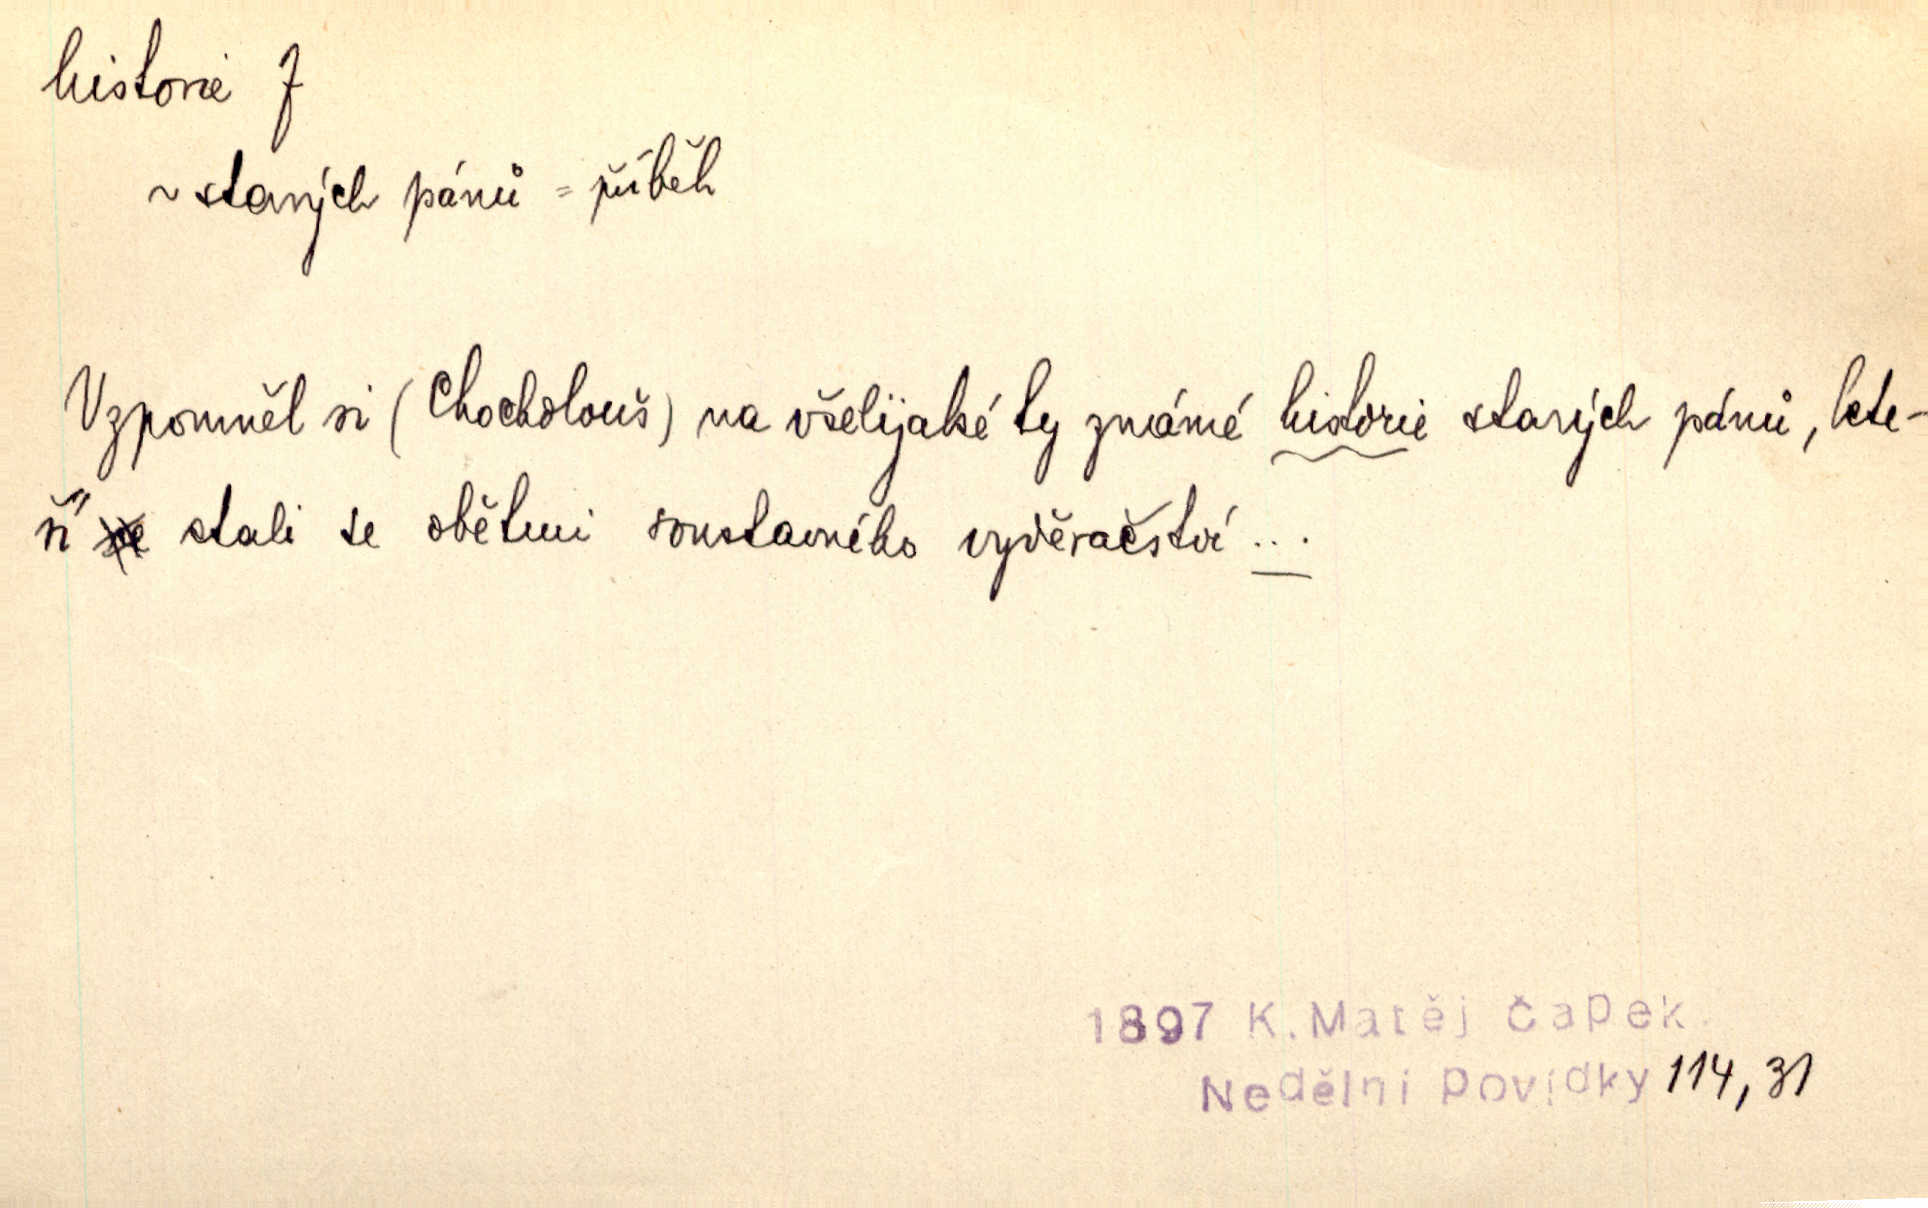 historie f
~ starých pánů = příběh
Vzpomněl si (Chocholouš) na všelijaké ty známé historie starých pánů, kte-
ří stali se obětmi soustavného vyděračství ...
1897 K. Matěj Čapek.
Nedělní povídky 114, 31